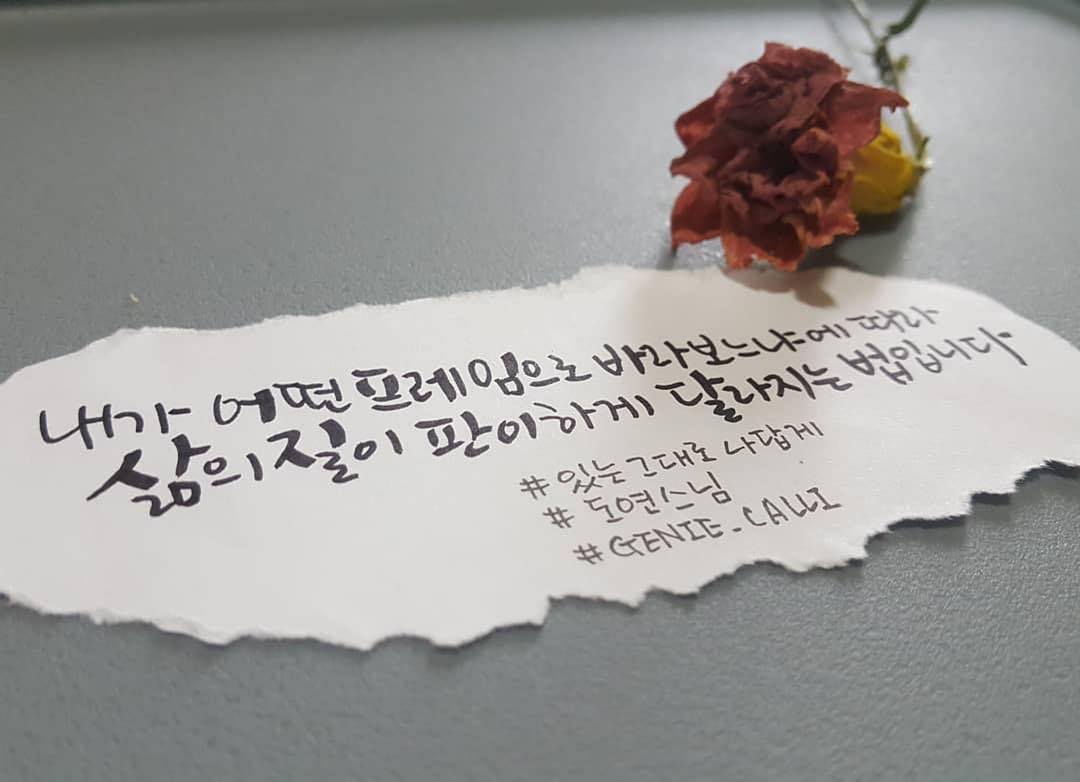 내가 어떤 프레임으로 바라보느냐에 따라
삶의 질이 판이하게 달라지는 법입니다
#있는 그대로 나답게
# 도연스님
#GENIE_CALLI